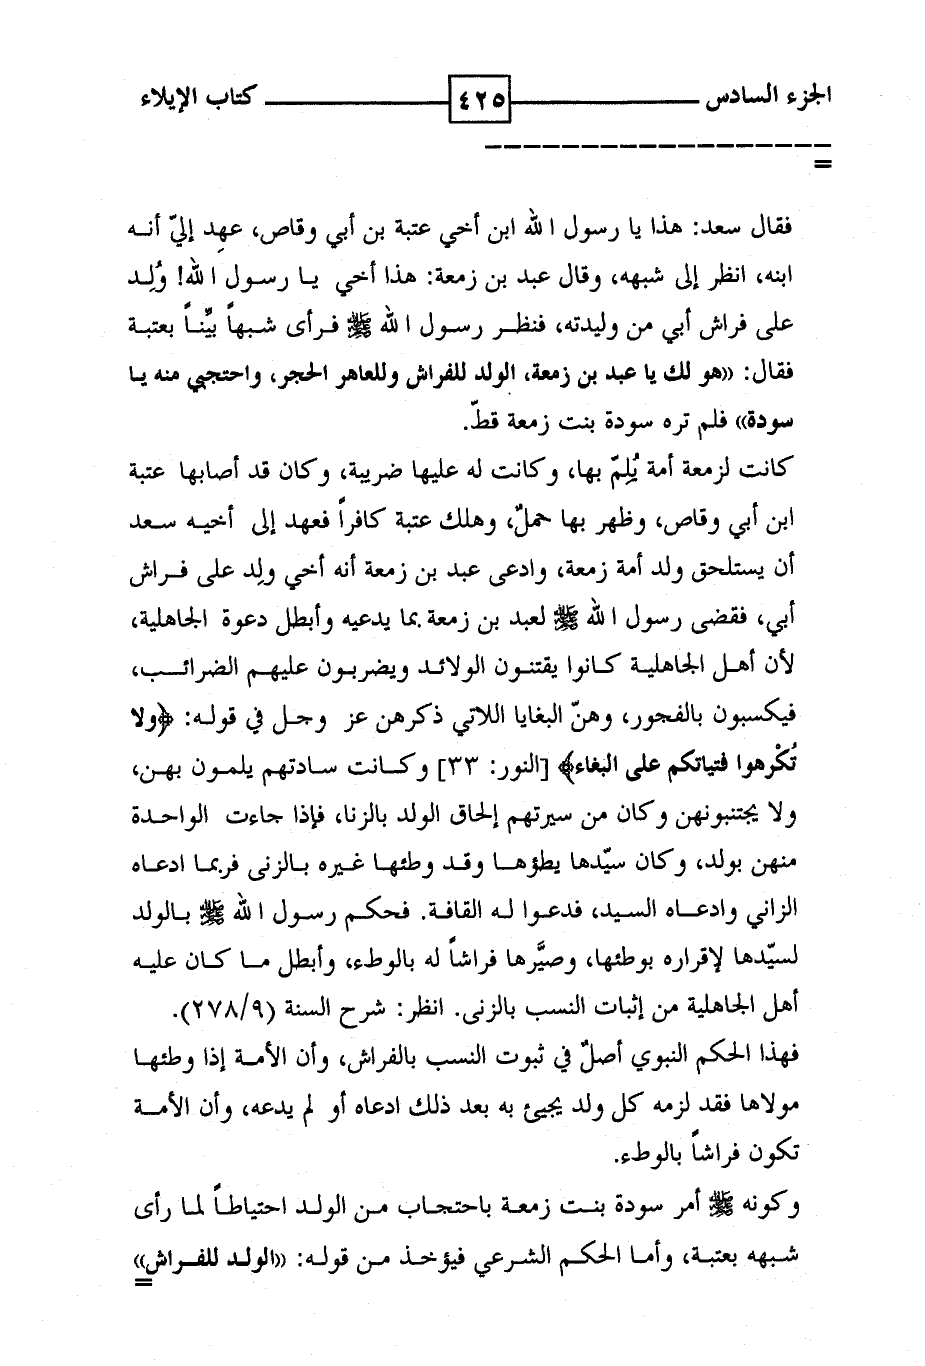 الجزء السادس ٤٢٥ كتاب الإيلاء
=
فقال سعد: هذا يا رسول الله ابن أخي عتبة بن أبي وقاص، عهِد إليّ أنه
ابنه، انظر إلى شبهه، وقال عبد بن زمعة: هذا أخي يا رسول الله! وُلِد
على فراش أبي من وليدته، فنظر رسول الله ﷺ فرأى شبهاً بيِّناً بعتبة
فقال: «هو لك يا عبد بن زمعة، الولد للفراش وللعاهر الحجر، واحتجبي منه يا
سودة» فلم تره سودة بنت زمعة قطّ.
كانت لزمعة أمة يُلِمّ بها، وكانت له عليها ضريبة، وكان قد أصابها عتبة
ابن أبي وقاص، وظهر بها حملٌ، وهلك عتبة كافراً فعهد إلى أخيه سعد
أن يستلحق ولد أمة زمعة، وادعى عبد بن زمعة أنه أخي ولِد على فراش
أبي، فقضى رسول الله ﷺ لعبد بن زمعة بما يدعيه وأبطل دعوة الجاهلية،
لأن أهل الجاهلية كانوا يقتنون الولائد ويضربون عليهم الضرائب،
فيكسبون بالفجور، وهنّ البغايا اللاتي ذكرهن عز وجل في قوله: ﴿ولا
تُكْرهوا فتياتكم على البغاء﴾ [النور: ٣٣] وكانت سادتهم يلمون بهن،
ولا يجتنبونهن وكان من سيرتهم إلحاق الولد بالزنا، فإذا جاءت الواحدة
منهن بولد، وكان سيّدها يطؤها وقد وطئها غيره بالزنى فربما ادعاه
الزاني وادعاه السيد، فدعوا له القافة. فحكم رسول الله ﷺ بالولد
لسيّدها لإقراره بوطئها، وصيَّرها فراشاً له بالوطء، وأبطل ما كان عليه
أهل الجاهلية من إثبات النسب بالزنى. انظر: شرح السنة (٢٧٨/٩).
فهذا الحكم النبوي أصلٌ في ثبوت النسب بالفراش، وأن الأمة إذا وطئها
مولاها فقد لزمه كل ولد يجيئ به بعد ذلك ادعاه أو لم يدعه، وأن الأمة
تكون فراشاً بالوطء.
وكونه ﷺ أمر سودة بنت زمعة باحتجاب من الولد احتياطاً لما رأى
شبهه بعتبة، وأما الحكم الشرعي فيؤخذ من قوله: «الولد للفراش»
=